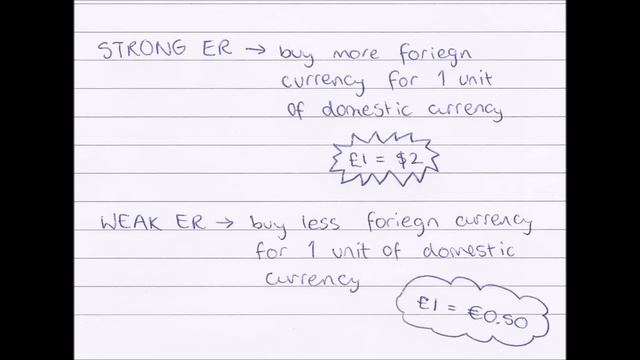 STRONG ER → buy more foriegn
currency for 1 unit
of domestic currency
£1 = $2
WEAK ER → buy less foriegn currency
for 1 unit of domestic
currency
£1 = €0.50